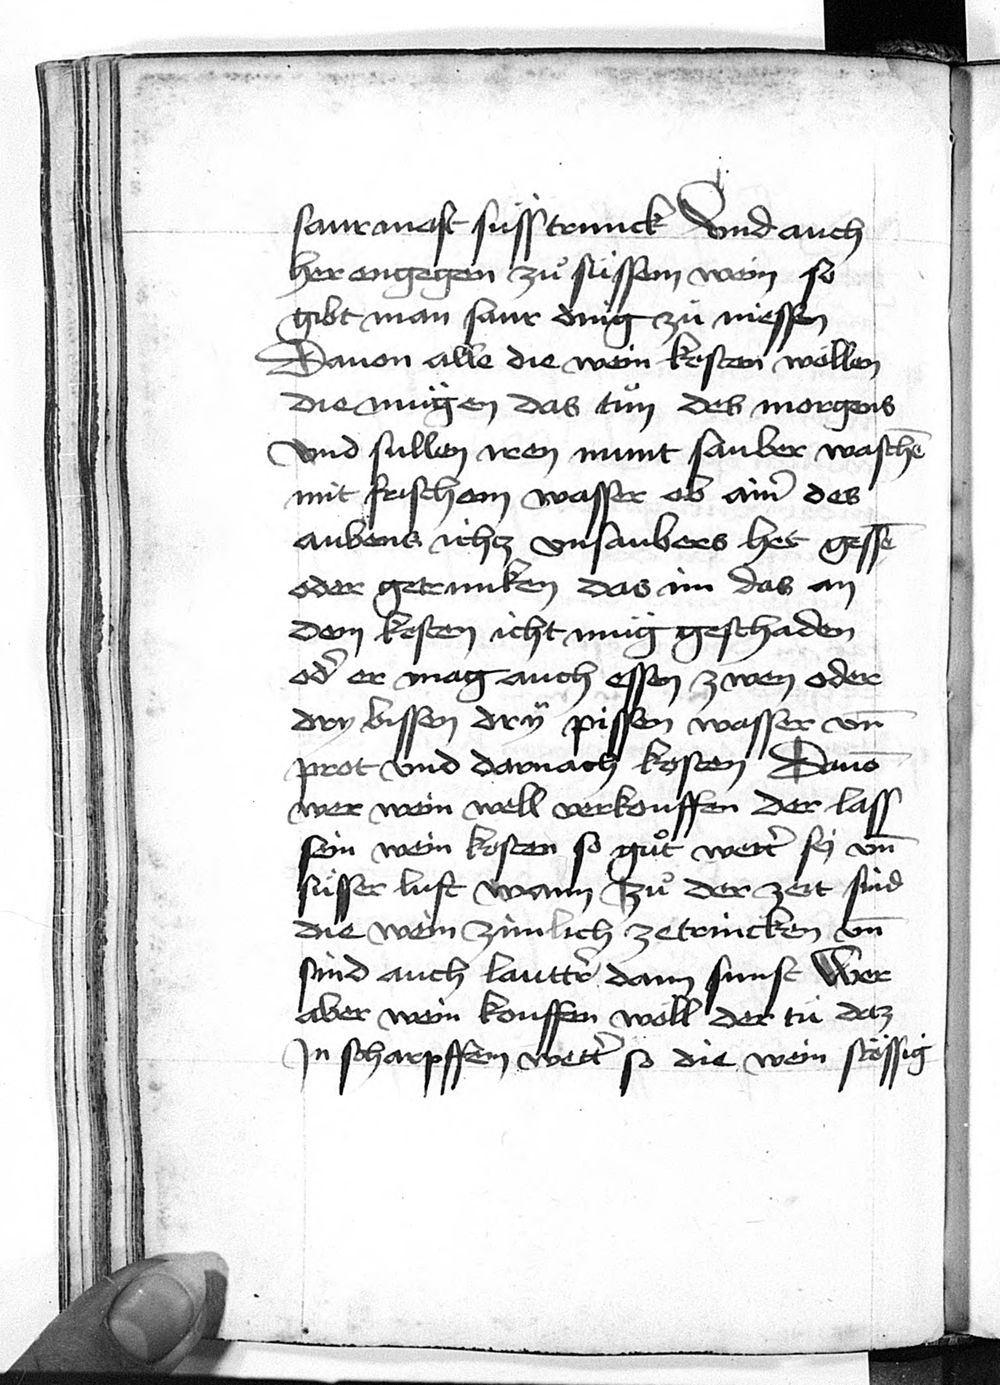 saur mast süsß trunck Vnd auch
her engegen zuͦ süssem wein so
gibt man saur ding zü niessen
Dauon alle die wein kosten wöllen
die mügen das tuͦn des morgens
vnd sullen iren munt sauber waschē
mit frischem wasser ob aim̄ des
aubens ichtz vnsaubers het gessē
oder getrunken das im das an
dem kosten icht müg geschaden
od̄ er mag auch essen zwen oder
dry bissen drÿ pissen wasser vn̄
prot vnd darnach kosten Dauō
wer wein well verkouffen der lass
sein wein kosten so guͦt wett̄ sey vn̄
süsser luft wann zuͦ der zeit sind
die wein zimlich ze trincken vn̄
sind auch lautt̄r dann sunst Wer
aber wein kouffen wöll der tü detz
Jn scharpffem wett̄ so die wein stössig